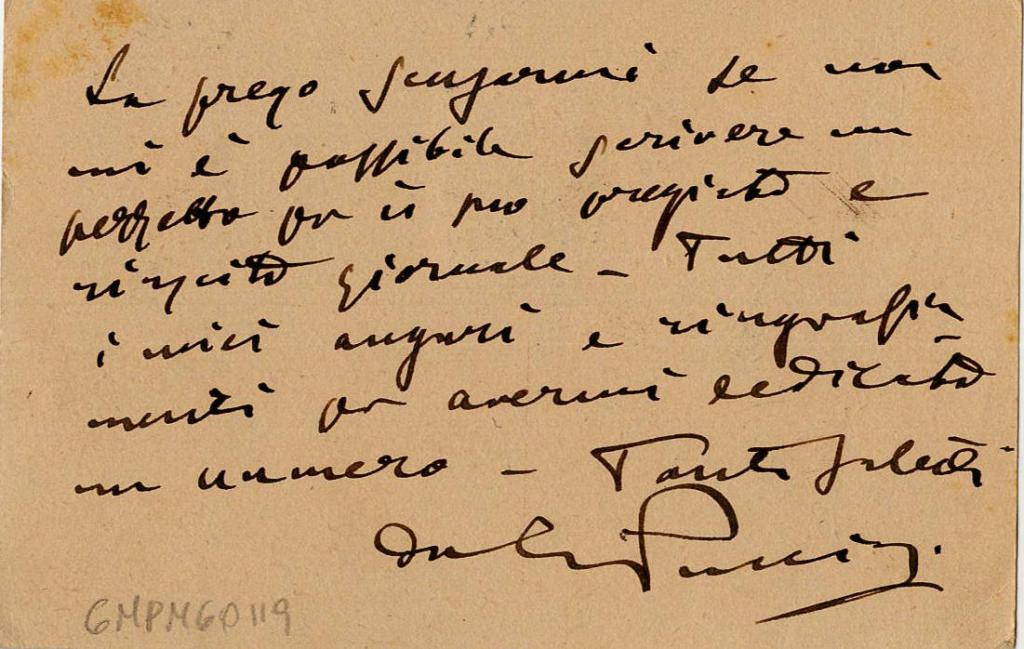 La prego scusarmi se non
mi è possibile scrivere un
pezzetto per il suo pregiato e
giornale - Tutti
i miei auguri e ringrazia-
menti per avermi dedicato
un numero - Tanti saluti
dal Puccini
GMPMGO119